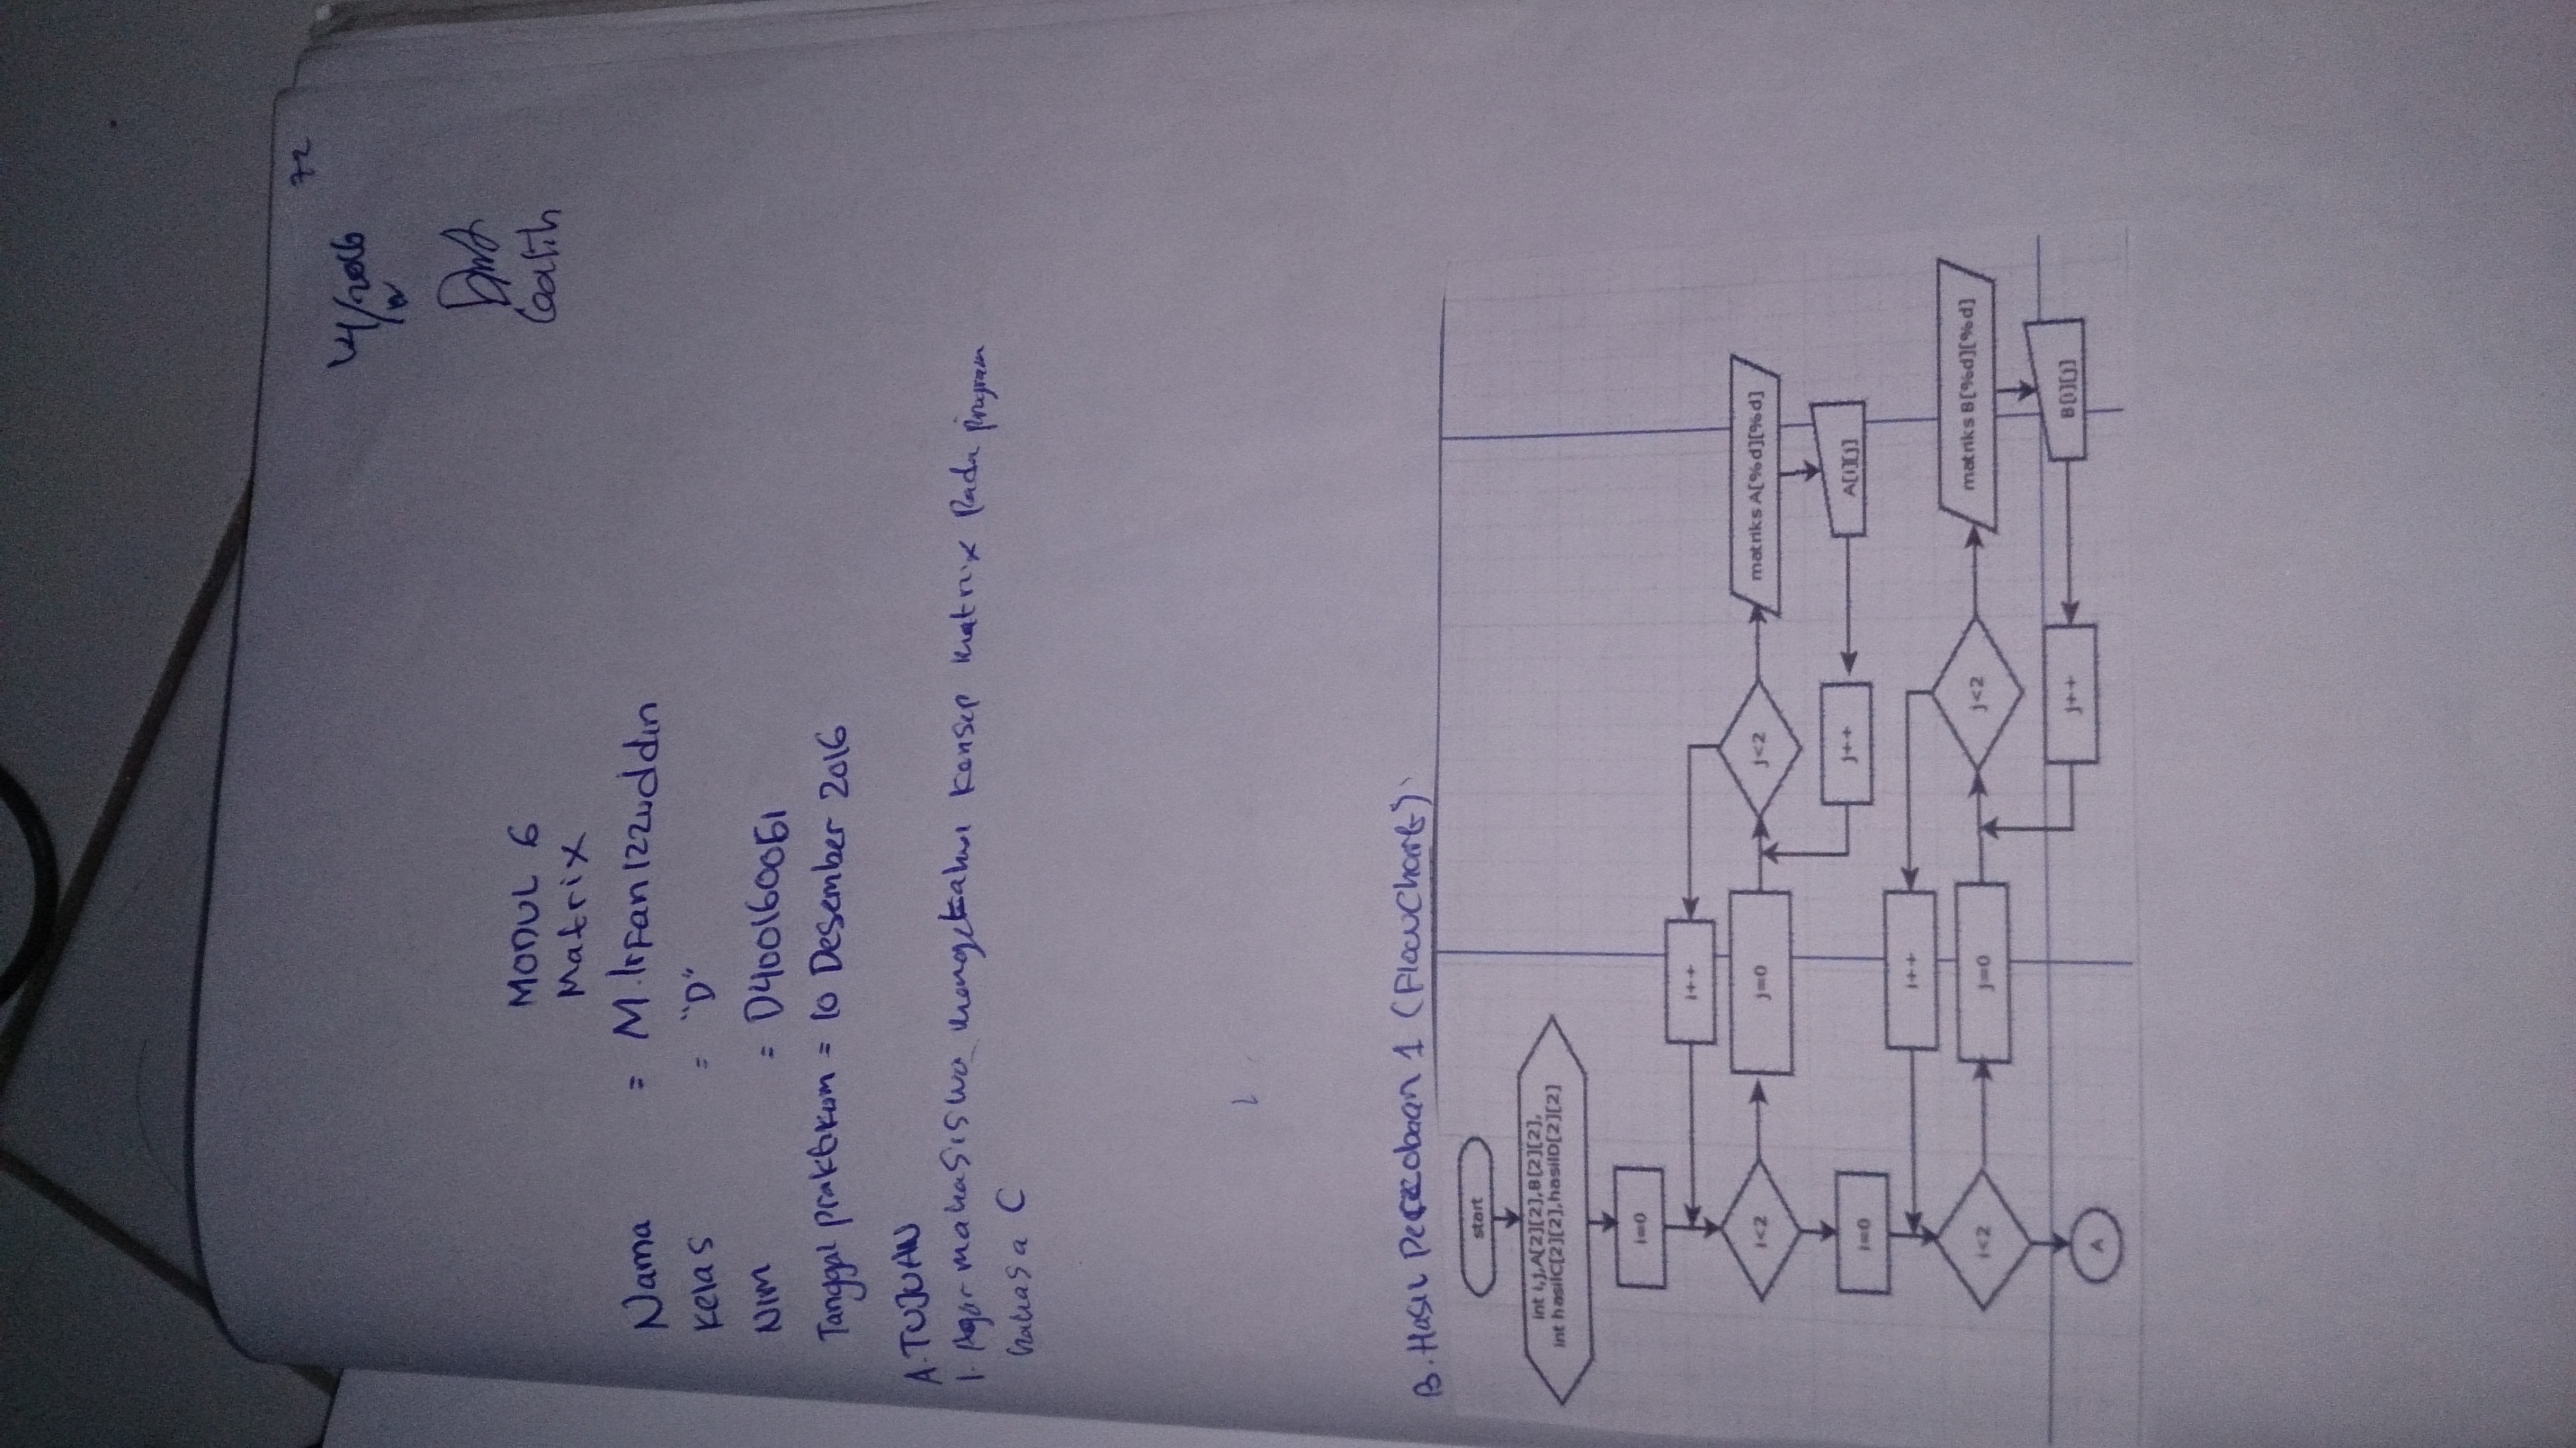 72
Galih
MODUL 6
Matrix
Nama = M. Irfan Izzuddin
Kelas = "D"
NIM = D400160061
Tanggal praktikum = 10 Desember 2016
A. TUJUAN
1. Agar mahasiswa mengetahui konsep matrix pada program
bahasa C
B. Hasil Percobaan 1 (Flowchart)
start
int i,j,A[2][2],B[2][2],
int hasilC[2][2],hasilD[2][2]
i=0
i++
i<2
j=0
j<2
matriks A[%d][%d]
j++
A[i][j]
i=0
i++
i<2
j=0
j<2
matriks B[%d][%d]
j++
B[i][j]
A